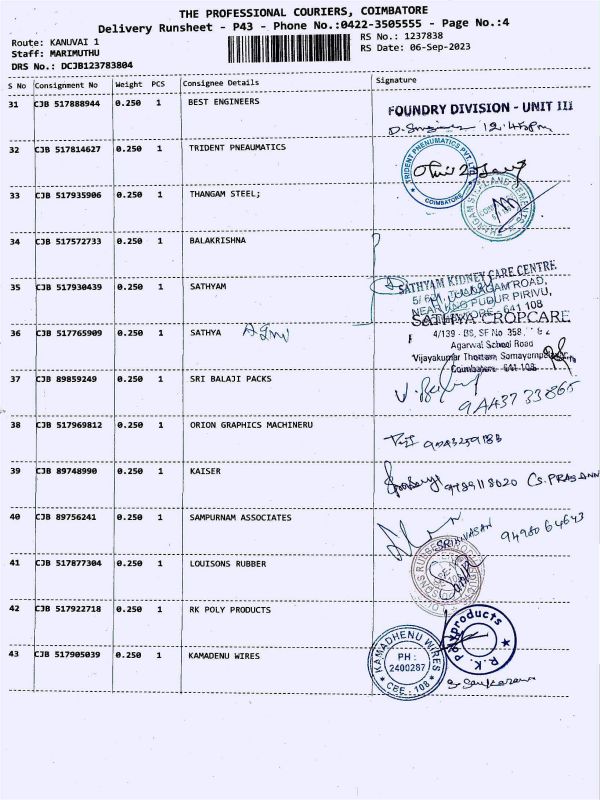 THE PROFESSIONAL COURIERS, COIMBATORE
Delivery Runsheet - P43 - Phone No.:0422-3505555 - Page No.:4
Route: KANUVAI 1
Staff: MARIMUTHU
DRS No.: DCJB123783804
RS No.: 1237838
RS Date: 06-Sep-2023
S No Consignment No Weight PCS Consignee Details Signature
31 CJB 517888944 0.250 1 BEST ENGINEERS
FOUNDRY DIVISION - UNIT III
12.45pm
32 CJB 517814627 0.250 1 TRIDENT PNEAUMATICS
TRIDENT PNEUMATICS PVT. LTD
COIMBATORE
33 CJB 517935906 0.250 1 THANGAM STEEL;
34 CJB 517572733 0.250 1 BALAKRISHNA
35 CJB 517930439 0.250 1 SATHYAM
SATHYAM KIDNEY CARE CENTRE
NEAR PUDUR PIRIVU,
641 108
36 CJB 517765909 0.250 1 SATHYA
SATHYA CROPCARE
4/139 - BS, SF No 358,
Agarwal School Road
Vijayakumar Thottam,
Coimbatore 641 108
37 CJB 89859249 0.250 1 SRI BALAJI PACKS
38 CJB 517969812 0.250 1 ORION GRAPHICS MACHINERU
39 CJB 89748990 0.250 1 KAISER
9789118020
40 CJB 89756241 0.250 1 SAMPURNAM ASSOCIATES
SRINIVASAN
9498064643
41 CJB 517877304 0.250 1 LOUISONS RUBBER
42 CJB 517922718 0.250 1 RK POLY PRODUCTS
R.K. Poly products
43 CJB 517905039 0.250 1 KAMADENU WIRES
KAMADHENU WIRES
PH :
2400287
CBE - 108